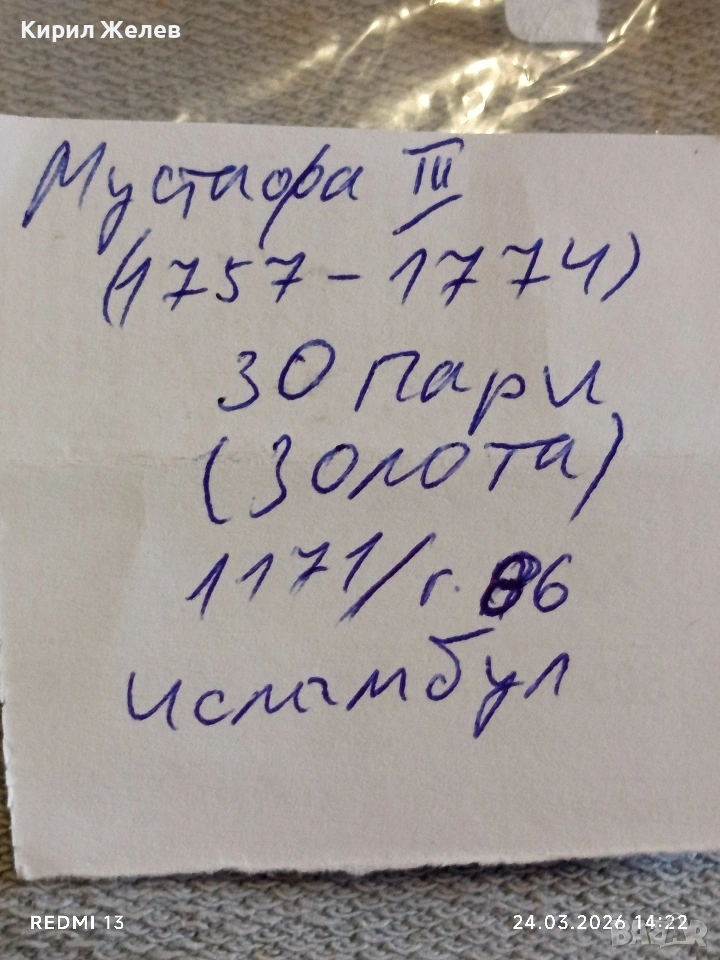 Кирил Желев
Мустафа III
(1757-1774)
30 пари
(Золота)
1171/г. 86
Исламбул
REDMI 13
24.03.2026 14:22
BAZAR